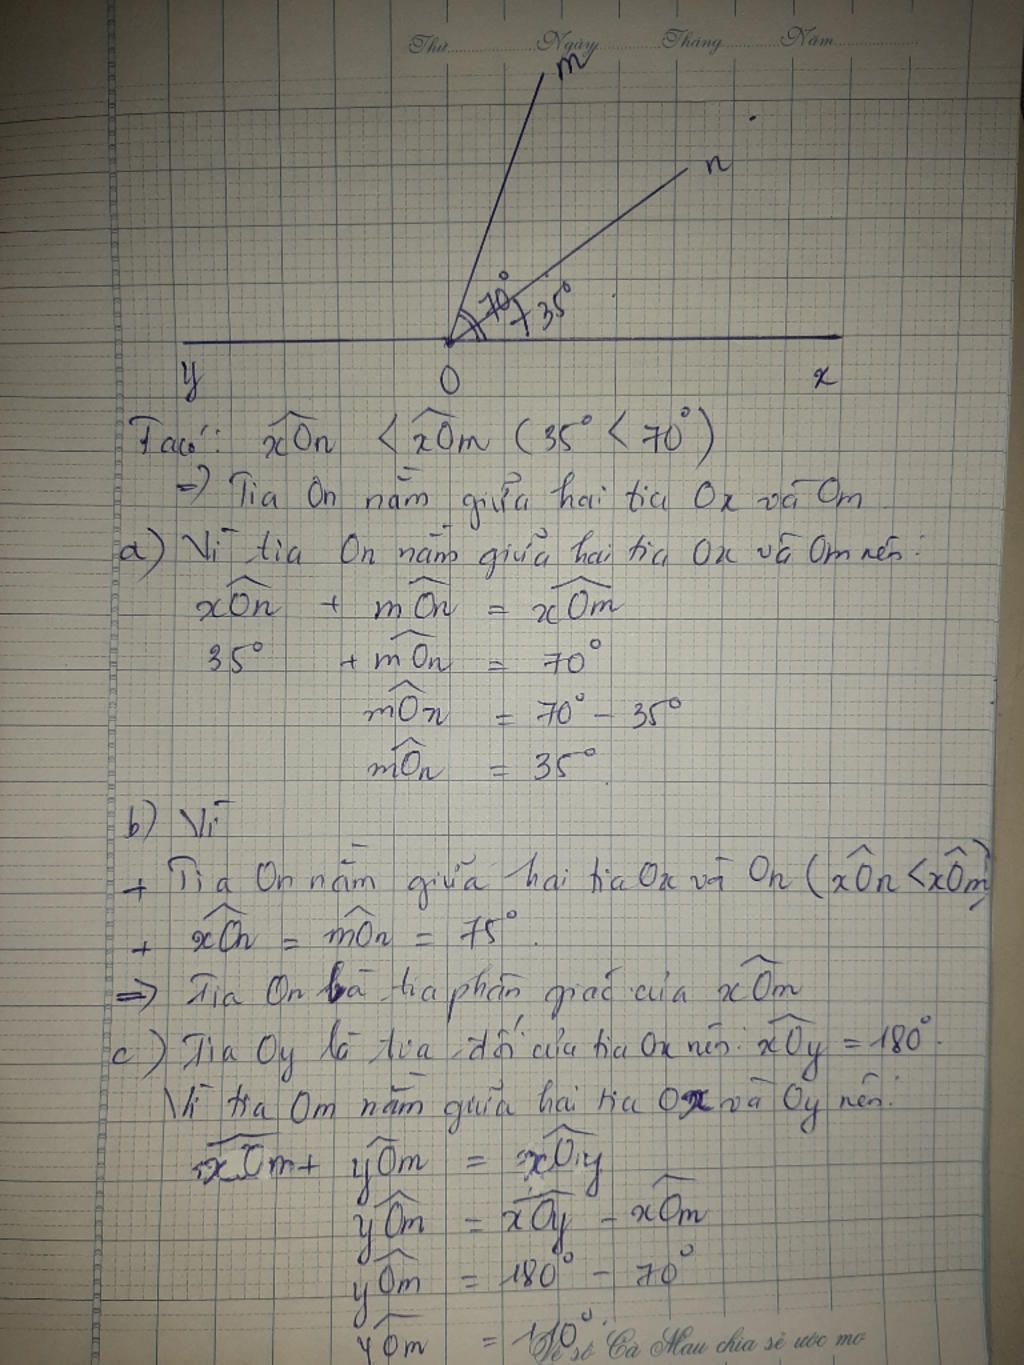 Thứ Ngày Tháng Năm
m
n
70° 35°
y O x
Ta có: xÔn < xÔm (35° < 70°)
=> Tia On nằm giữa hai tia Ox và Om
a) Vì tia On nằm giữa hai tia Ox và Om nên:
xÔn + mÔn = xÔm
35° + mÔn = 70°
mÔn = 70° - 35°
mÔn = 35°
b) Vì
+ Tia On nằm giữa hai tia Ox và On (xÔn < xÔm)
+ xÔn = mÔn = 75°
=> Tia On là tia phân giác của xÔm
c) Tia Oy là tia đối của tia Ox nên: xÔy = 180°
Vì tia Om nằm giữa hai tia Ox và Oy nên:
xÔm + yÔm = xÔy
yÔm = xÔy - xÔm
yÔm = 180° - 70°
yÔm = 110°
Vé số Cà Mau chia sẻ ước mơ